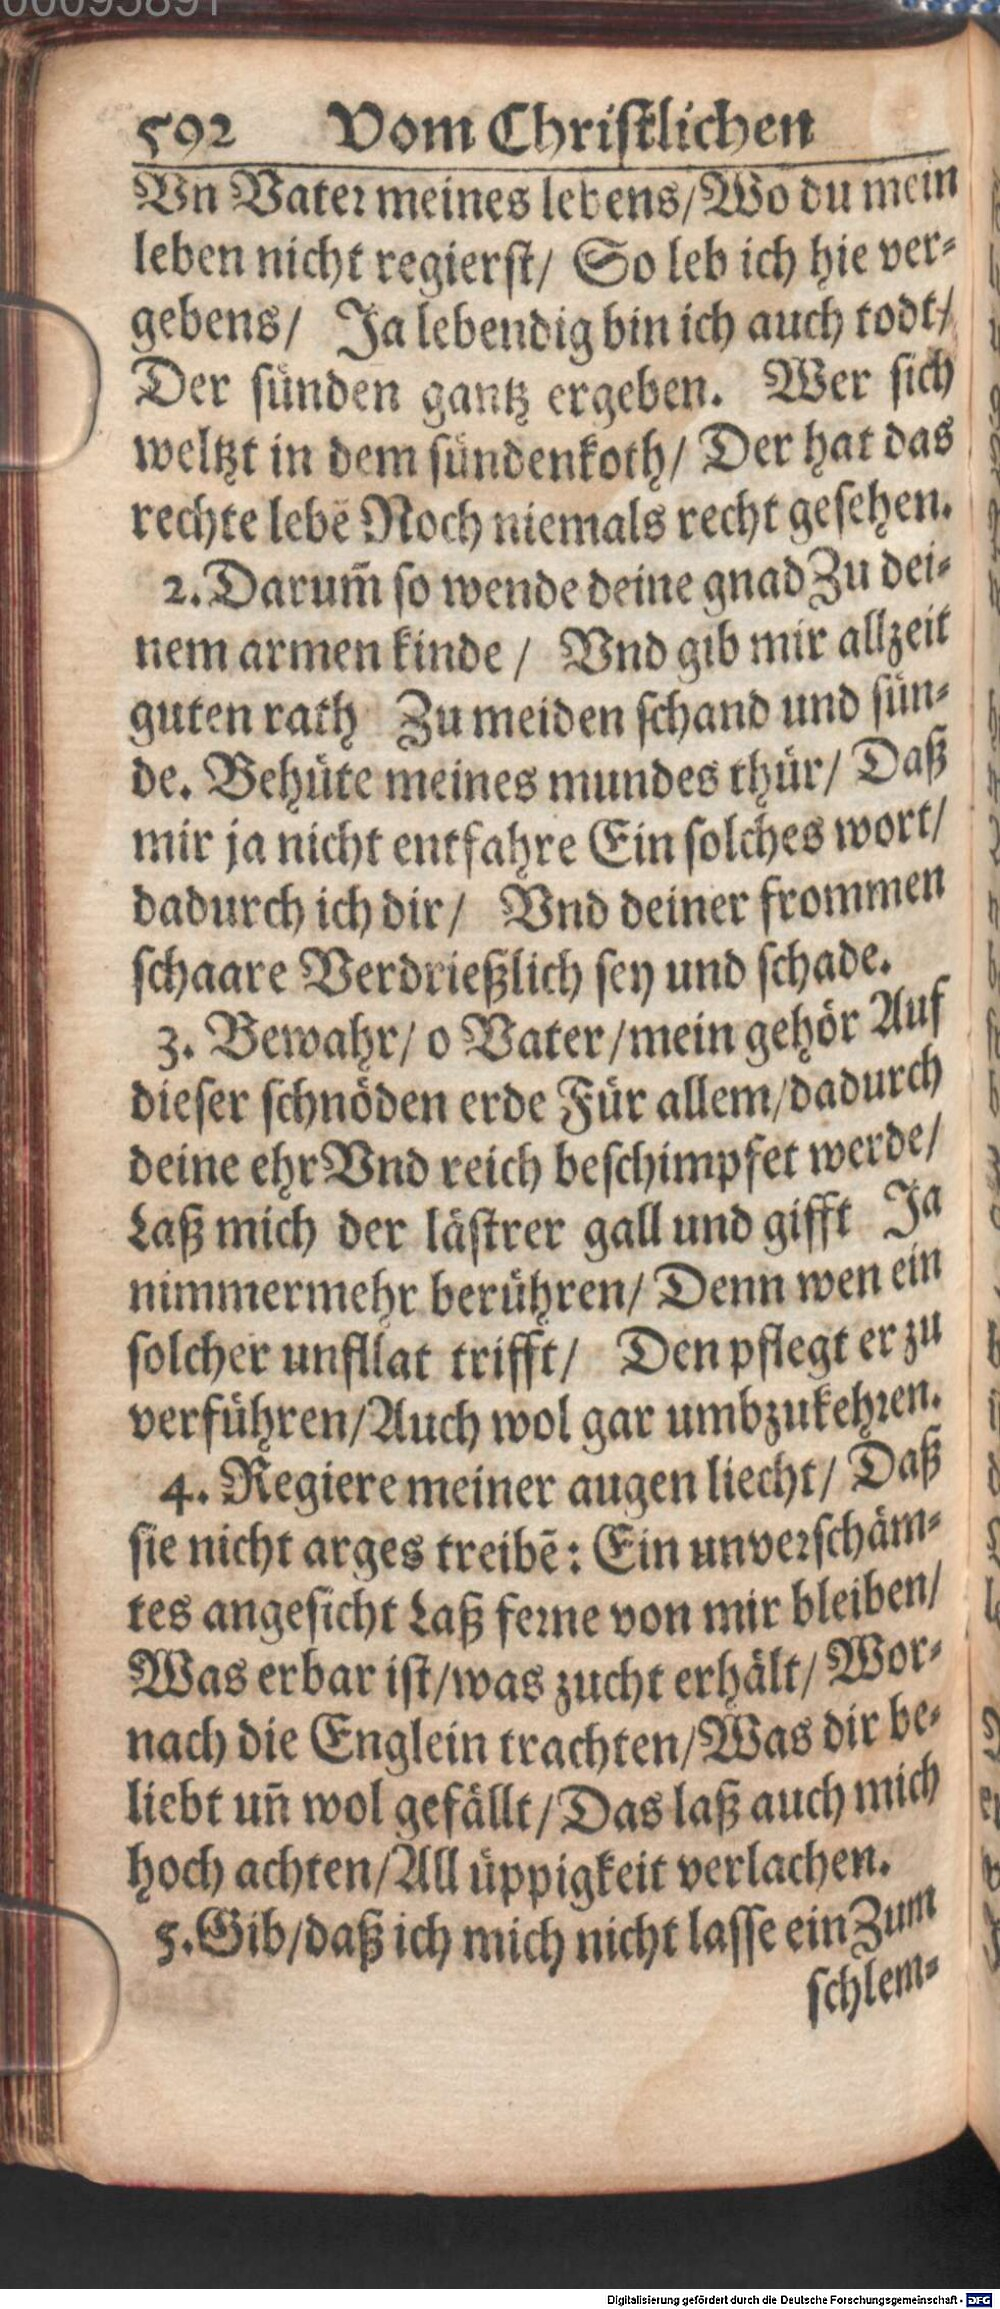 00095891
592 Vom Christlichen
Vn Vater meines lebens/ Wo du mein
leben nicht regierst/ So leb ich hie ver-
gebens/ Ja lebendig bin ich auch todt/
Der sünden gantz ergeben. Wer sich
weltzt in dem sündenkoth/ Der hat das
rechte lebē Noch niemals recht gesehen.
2. Darum̃ so wende deine gnad Zu dei-
nem armen kinde / Vnd gib mir allzeit
guten rath Zu meiden schand und sün-
de. Behüte meines mundes thür/ Daß
mir ja nicht entfahre Ein solches wort/
dadurch ich dir/ Vnd deiner frommen
schaare Verdrießlich sey und schade.
3. Bewahr/ o Vater/ mein gehör Auf
dieser schnöden erde Für allem/ dadurch
deine ehr Vnd reich beschimpfet werde/
Laß mich der lästrer gall und gifft Ja
nimmermehr berühren/ Denn wen ein
solcher unfllat trifft/ Den pflegt er zu
verführen/ Auch wol gar umbzukehren.
4. Regiere meiner augen liecht/ Daß
sie nicht arges treibē: Ein unverschäm-
tes angesicht Laß ferne von mir bleiben/
Was erbar ist/ was zucht erhält/ Wor-
nach die Englein trachten/ Was dir be-
liebt uñ wol gefällt/ Das laß auch mich
hoch achten/ All üppigkeit verlachen.
5. Gib/ daß ich mich nicht lasse ein Zum
schlem-
Digitalisierung gefördert durch die Deutsche Forschungsgemeinschaft - DFG